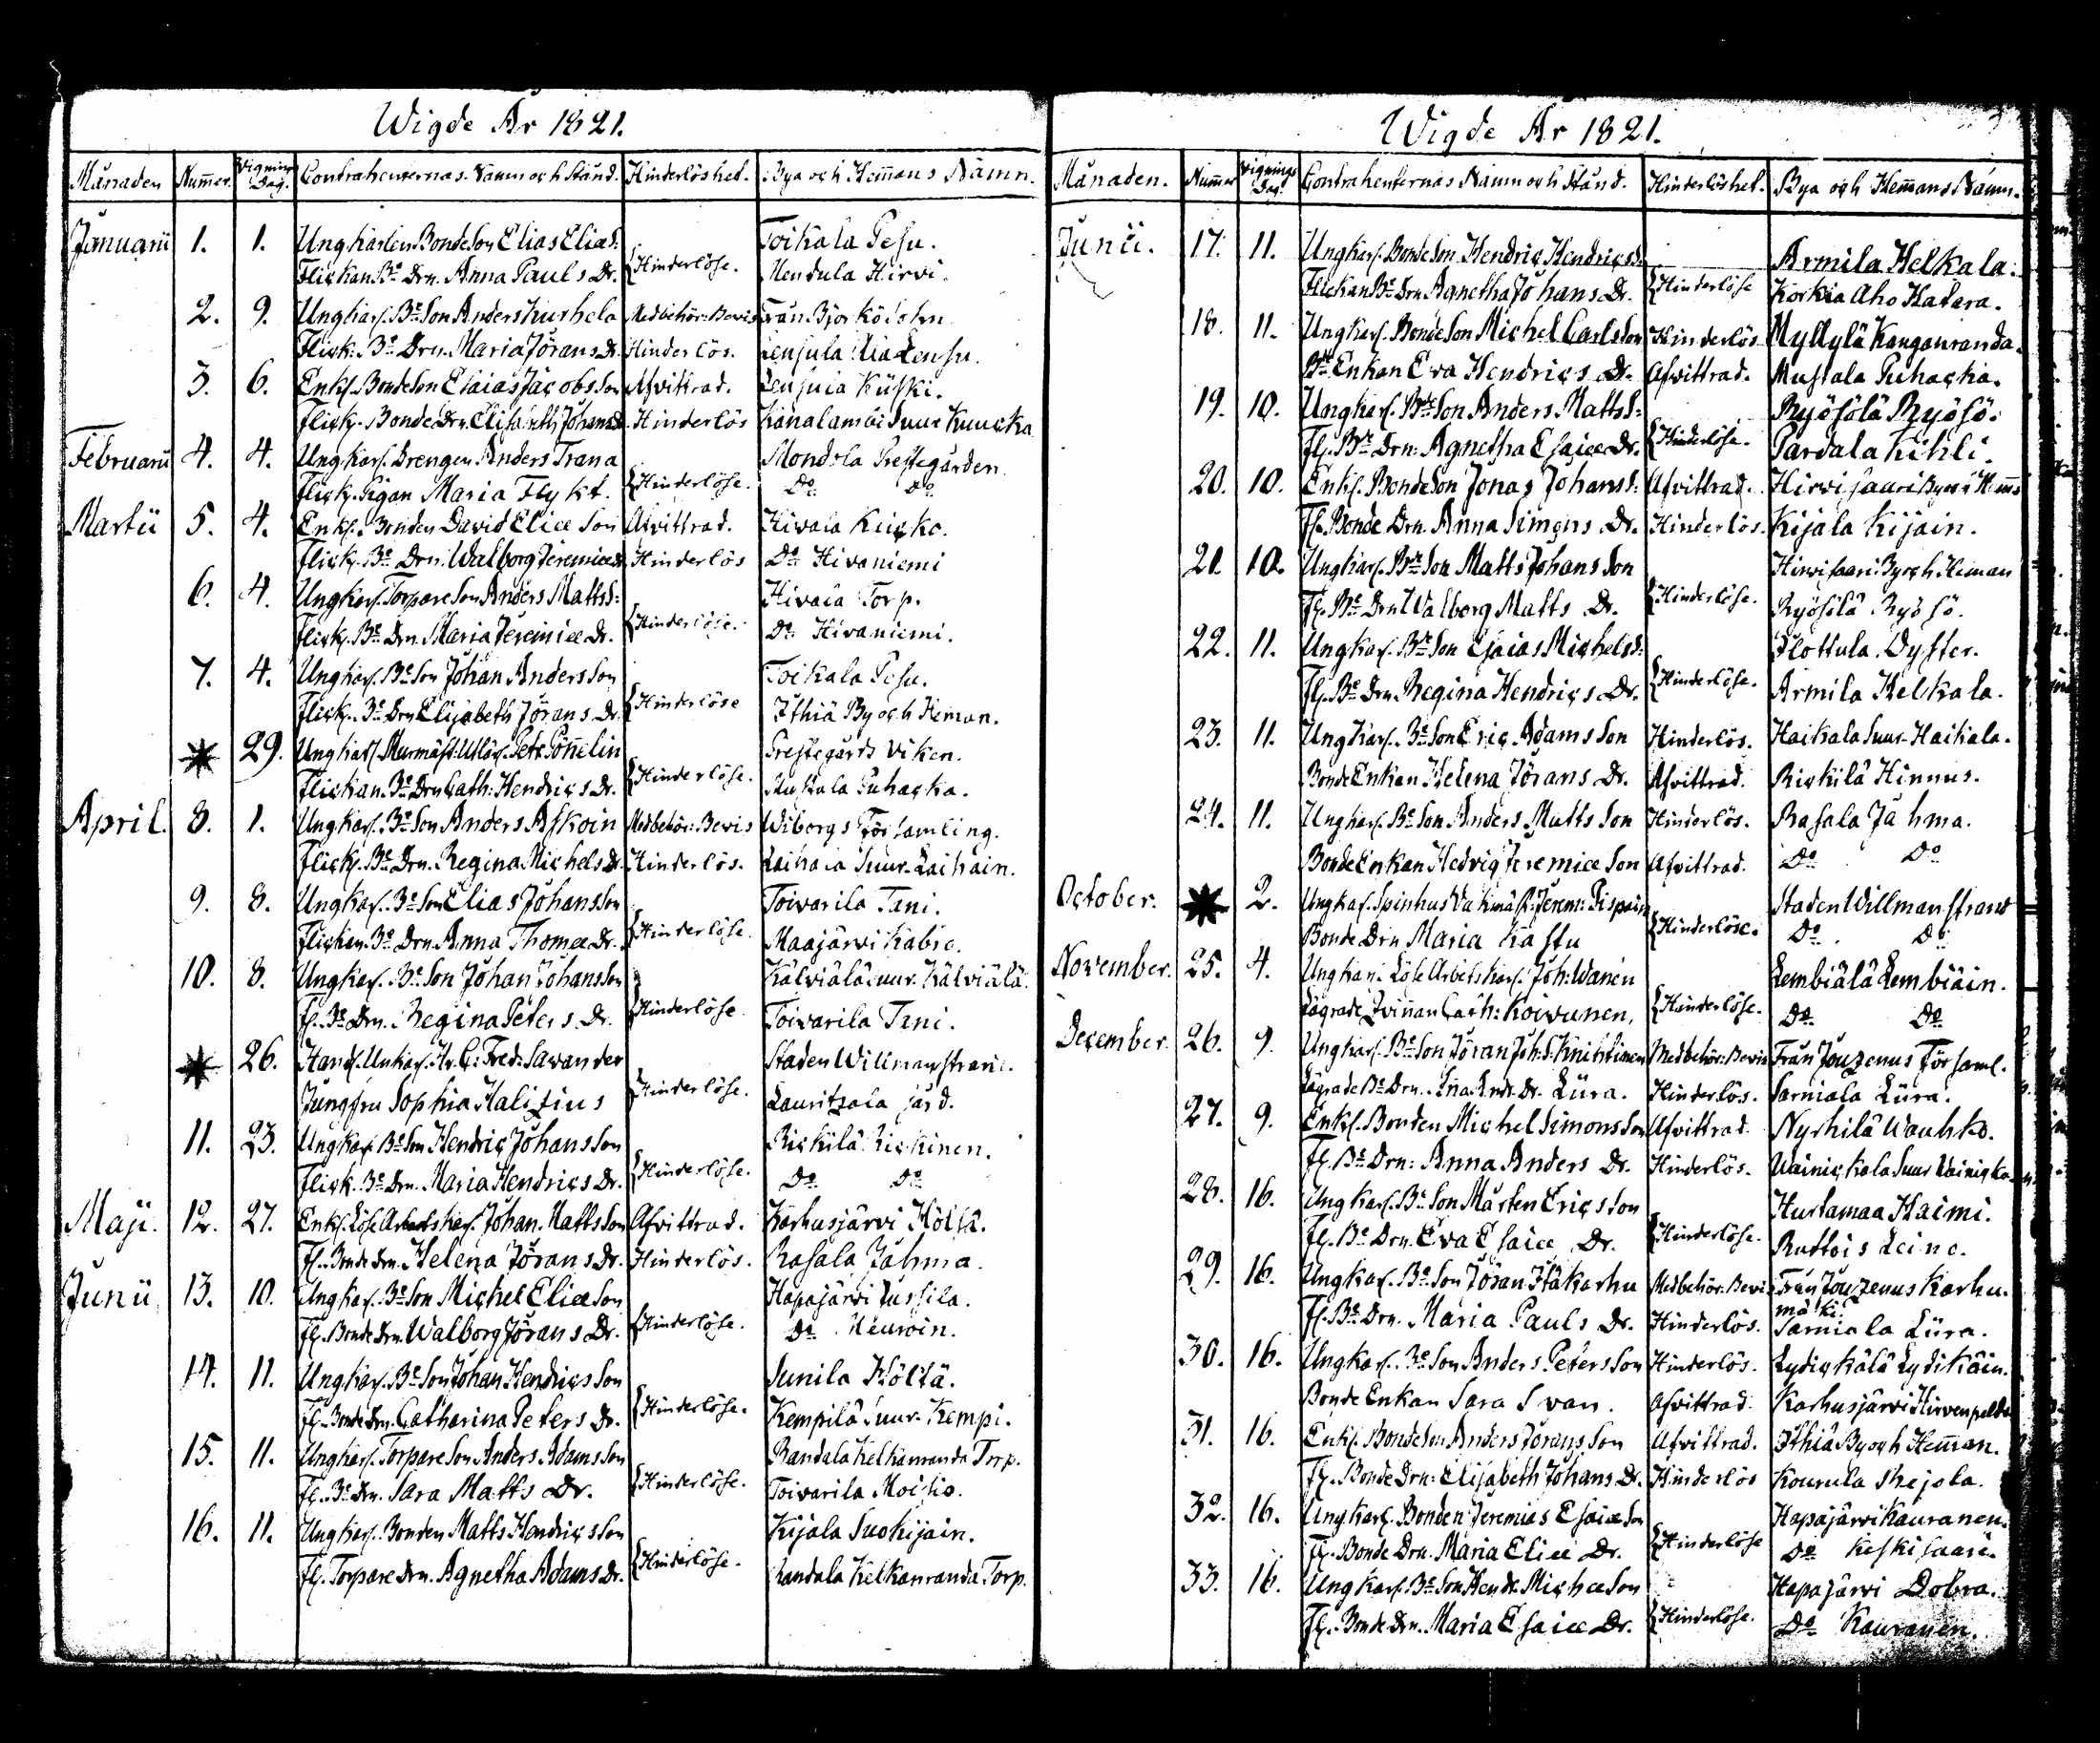 Wigde År 1821.
Månaden Num̄er. Vignings Dag. Contrahenternas Namn och Stånd. Hinderlöshet. Bya och Hem̄ans Namn.
Januarii 1. 1. Ungkarlen Bonde Son Elias Elias S: Toikala Pesu.
Flickan Be Drn. Anna Pauls Dr. {Hinderlöse. Mendula Hirvi.
2. 9. Ungkarl. Be Son Anders Kurhela Medbehör: Bevis Från Björkö
Flick. Be Drn. Maria Jörans Dr. Hinderlös. Lensula
3. 6. Enkl. Bonde Son Esaias Jacobs Son Afvittrad. Lensula Küski.
Flick. Bonde Drn. Elisabeth Johans Dr. Hinderlös Kanalambi Suur Kuucka
Februarii 4. 4. Ungkarl. Drengen Anders Trana Mondola Prestegården
Flick. Pigan Maria Flykt. {Hinderlöse. Do Do
Martii 5. 4. Enkl. Bonden David Eliæ Son Afvittrad. Hivala Kücko.
Flick. Be Drn. Walborg Jeremiæ Dr. Hinderlös Do Hivaniemi
6. 4. Ungkarl. Torpare Son Anders Matts S: Hivala Torp.
Flick. Be Drn. Maria Jeremiæ Dr. {Hinderlöse. Do Hivaniemi.
7. 4. Ungkarl. Be Son Johan Anders Son Toikala Pesu.
Flick. Be Drn Elisabeth Jörans Dr. {Hinderlöse Ithiä By och Heman.
29. Ungkarl Murmäst: Utlär. Petr Pön̄elin Prestegårds Viken.
Flickan. Be Drn Cath: Hendrics Dr. {Hinderlöse. Mustala Puhacka.
April. 8. 1. Ungkarl. Be Son Anders Askoin Medbehör: Bevis Wiborgs Församling.
Flick. Be Drn. Regina Michels Dr. Hinderlös. Laihala Suur-Laihain.
9. 8. Ungkarl. Be Son Elias Johans Son Toivarila Tani.
Flickan. Be Drn Anna Thomæ Dr. {Hinderlöse. Maajärvi Kabie.
10. 8. Ungkarl. Be Son Johan Johans Son Kälviälä Suur Kälviälä.
Fl. Be Drn. Regina Peters Dr. {Hinderlöse. Toivarila Tani.
26. Handl. Unkarl. Hr. C: Fred: Savander Staden Willmanstrand.
Jungfru Sophia Halizius {Hinderlöse. Lauritzala jård.
11. 23. Ungkarl Be Son Hendric Johans Son Rickilä Rickinen.
Flick. Be Drn. Maria Hendrics Dr. {Hinderlöse. Do Do
Maji. 12. 27. Enkl. Löse Arbetskarl. Johan. Matts Son Afvittrad. Karhusjärvi Höltä.
Fl. Bonde Drn. Helena Jörans Dr. Hinderlös. Rasala Jahma.
Junii 13. 10. Ungkarl. Be Son Michel Eliæ Son Hapajärvi Jussila.
Fl. Bonde Drn. Walborg Jörans Dr. {Hinderlöse. Do Neuvoin.
14. 11. Ungkarl. Be Son Johan Hendrics Son Sunila Höltä.
Fl. Bonde Drn. Catharina Peters Dr. {Hinderlöse. Kempilä Suur-Kempi.
15. 11. Ungkarl. Torpare Son Anders Adams Son Randala Kelkanranda Torp.
Fl. Be Drn. Sara Matts Dr. {Hinderlöse. Toivarila Moisio.
16. 11. Ungkarl. Bonden Matts Hendrics Son Kijala Suokijain.
Fl. Torpare Drn. Agnetha Adams Dr. {Hinderlöse. Randala Kelkanranda Torp.
Wigde År 1821.
Månaden. Num̄er Vignings Dag. Contrahenternas Namn och Stånd. Hinderlöshet. Bya och Hem̄ans Namn.
Junii. 17. 11. Ungkarl. Bonde Son Hendric Hendrics S: Armila Helkala.
Flickan Be Drn Agnetha Johans Dr. {Hinderlöse Korkia Aho Hatara.
18. 11. Ungkarl. Bonde Son Michel Carls Son Hinderlös Myllylä Kanganranda.
Bde Enkan Eva Hendrics Dr. Afvittrad. Mustala Puhacka.
19. 10. Ungkarl. Bde Son Anders Matts S: Ryösölä Ryösö.
Fl. Be Drn: Agnetha Esaiæ Dr. {Hinderlöse. Pardala Kihli.
20. 10. Enkl. Bonde Son Jonas Johans S: Afvittrad. Hirvisaari By och Hem̄
Fl. Bonde Drn. Anna Simons Dr. Hinderlös. Kijala Kijain.
21. 10. Ungkarl. Bde Son Matts Johans Son Hirvisaari By och Heman
Fl. Be Drn Walborg Matts Dr. {Hinderlöse. Ryösölä Ryösö.
22. 11. Ungkarl. Bde Son Esaias Michels S: Flottula Dyster.
Fl. Be Drn Regina Hendrics Dr. {Hinderlöse. Armila Helkala.
23. 11. Ungkarl. Be Son Eric Adams Son Hinderlös. Haikala Suur-Haikala.
Bonde Enkan Helena Jörans Dr. Afvittrad. Rickilä Hinnus.
24. 11. Ungkarl. Be Son Anders Matts Son Hinderlös. Rasala Jahma.
Bonde Enkan Hedvig Jeremiæ Son Afvittrad. Do Do
October. 2. Ungkarl. Spinhus Vaktmäst: Jerem: Pispain Staden Willmanstrand
Bonde Drn Maria Kastu {Hinderlöse. Do Do
November. 25. 4. Ungkarl. Löse Arbetskarl. Joh: Wanén Lembiälä Lembiäin.
Lägrade Qvin̄an Cath: Koivunen, {Hinderlöse. Do Do
December. 26. 9. Ungkarl. Be Son Jöran Joh: S. Knihtinen Medbehör: Bevis Från Jouzenus Församl.
Lägrade Be Drn. Andr. Dr. Lüra. Hinderlös. Sarviala Lüra.
27. 9. Enkl. Bonden Michel Simons Son Afvittrad Nyrhilä Wauhko.
Fl. Be Drn: Anna Anders Dr. Hinderlös. Wainickala Suur Wainicka
28. 16. Ungkarl. Be Son Mårten Erics Son Hurtamaa Haimi.
Fl. Be Drn. Eva Esaiæ Dr. {Hinderlöse. Ruttois Leino.
29. 16. Ungkarl. Be Son Jöran Itäkarhu Medbehör. Bevis Från Jouzenus Karhu.
mäki.
Fl. Be Drn. Maria Pauls Dr. Hinderlös. Sarviala Lüra.
30. 16. Ungkarl. Be Son Anders Peters Son Hinderlös. Lydickälä Lydikäin.
Bonde Enkan Sara Svan. Afvittrad. Karhusjärvi Hirvenpelto
31. 16. Enkl. Bonde Son Anders Jörans Son Afvittrad. Ithiä By och Hem̄an.
Fl. Bonde Drn: Elisabeth Johans Dr. Hinderlös Kourula Shejola.
32. 16. Ungkarl. Bonden Jeremias Esaiæ Son Hapajärvi Kauranen.
Fl. Bonde Drn. Maria Eliæ Dr. {Hinderlöse Do Keskisaari.
33. 16. Ungkarl. Be Son Hendr. Michæ Son Hapajärvi Dobra.
Fl. Bonde Drn. Maria Esaiæ Dr. {Hinderlöse. Do Kauranen.